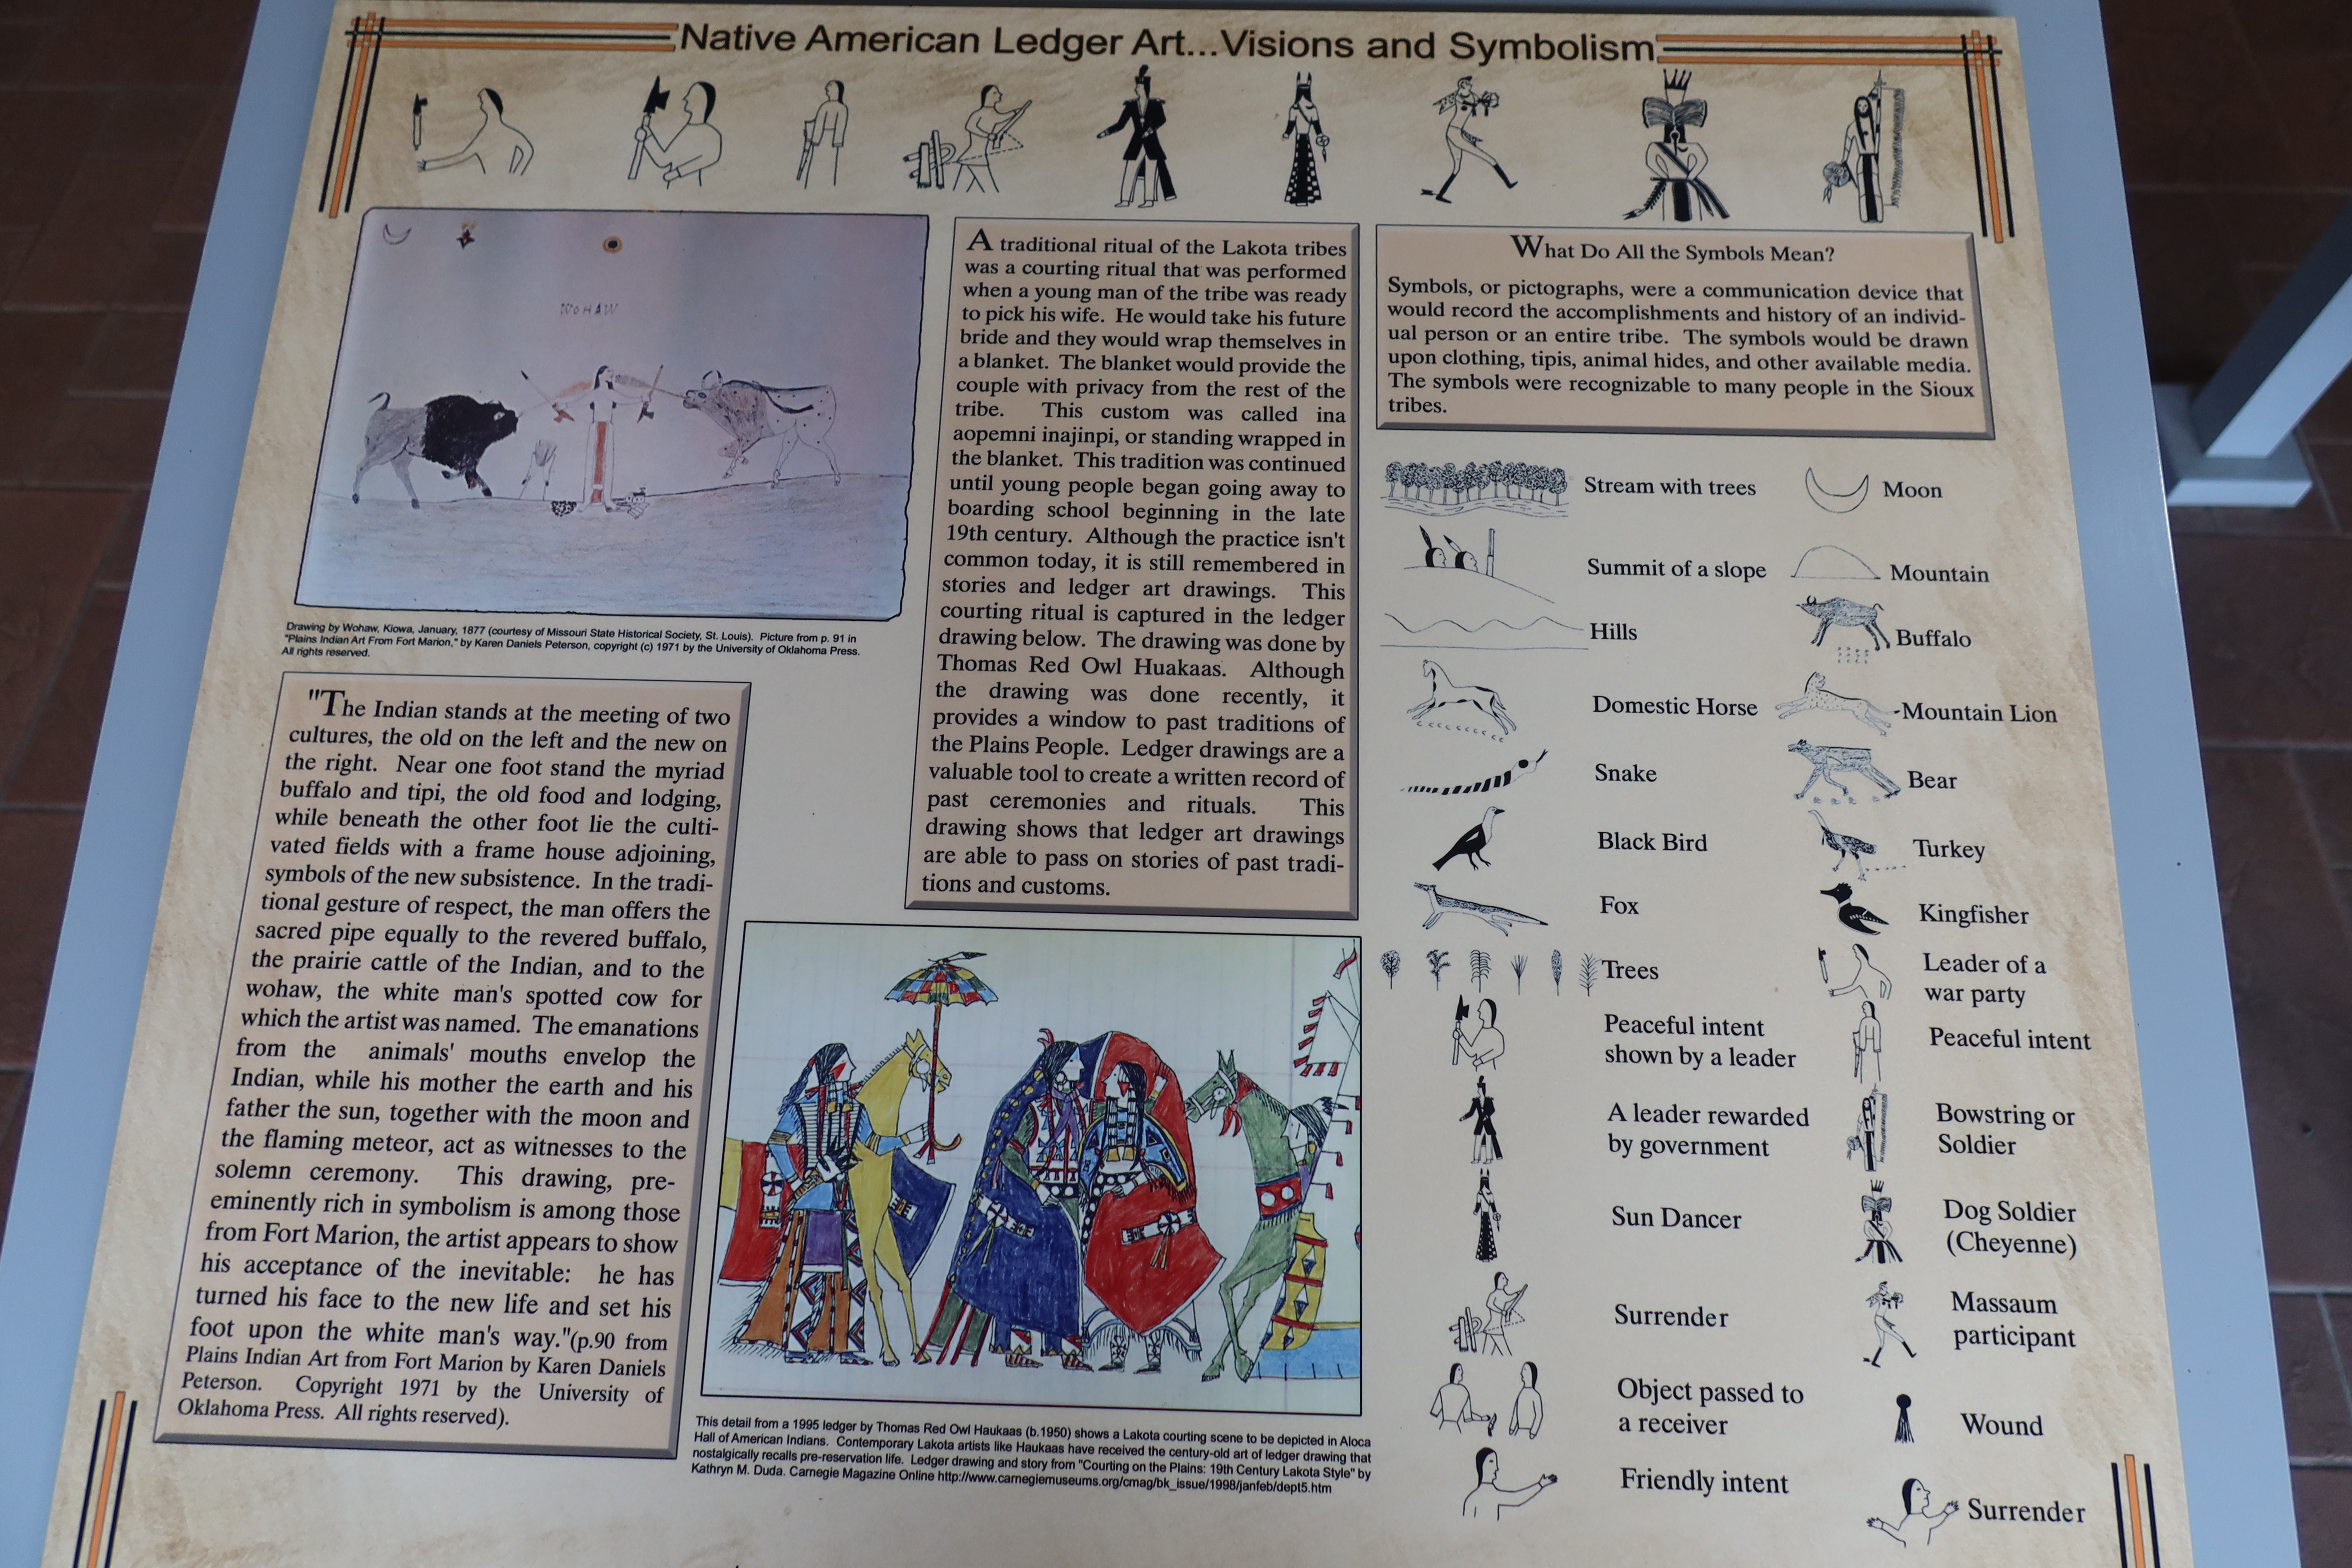 Native American Ledger Art...Visions and Symbolism
WOHAW
Drawing by Wohaw, Kiowa, January, 1877 (courtesy of Missouri State Historical Society, St. Louis). Picture from p. 91 in
"Plains Indian Art From Fort Marion," by Karen Daniels Peterson, copyright (c) 1971 by the University of Oklahoma Press.
All rights reserved.
"The Indian stands at the meeting of two
cultures, the old on the left and the new on
the right. Near one foot stand the myriad
buffalo and tipi, the old food and lodging,
while beneath the other foot lie the culti-
vated fields with a frame house adjoining,
symbols of the new subsistence. In the tradi-
tional gesture of respect, the man offers the
sacred pipe equally to the revered buffalo,
the prairie cattle of the Indian, and to the
wohaw, the white man's spotted cow for
which the artist was named. The emanations
from the animals' mouths envelop the
Indian, while his mother the earth and his
father the sun, together with the moon and
the flaming meteor, act as witnesses to the
solemn ceremony. This drawing, pre-
eminently rich in symbolism is among those
from Fort Marion, the artist appears to show
his acceptance of the inevitable: he has
turned his face to the new life and set his
foot upon the white man's way."(p.90 from
Plains Indian Art from Fort Marion by Karen Daniels
Peterson. Copyright 1971 by the University of
Oklahoma Press. All rights reserved).
A traditional ritual of the Lakota tribes
was a courting ritual that was performed
when a young man of the tribe was ready
to pick his wife. He would take his future
bride and they would wrap themselves in
a blanket. The blanket would provide the
couple with privacy from the rest of the
tribe. This custom was called ina
aopemni inajinpi, or standing wrapped in
the blanket. This tradition was continued
until young people began going away to
boarding school beginning in the late
19th century. Although the practice isn't
common today, it is still remembered in
stories and ledger art drawings. This
courting ritual is captured in the ledger
drawing below. The drawing was done by
Thomas Red Owl Huakaas. Although
the drawing was done recently, it
provides a window to past traditions of
the Plains People. Ledger drawings are a
valuable tool to create a written record of
past ceremonies and rituals. This
drawing shows that ledger art drawings
are able to pass on stories of past tradi-
tions and customs.
This detail from a 1995 ledger by Thomas Red Owl Haukaas (b.1950) shows a Lakota courting scene to be depicted in Aloca
Hall of American Indians. Contemporary Lakota artists like Haukaas have received the century-old art of ledger drawing that
nostalgically recalls pre-reservation life. Ledger drawing and story from "Courting on the Plains: 19th Century Lakota Style" by
Kathryn M. Duda. Carnegie Magazine Online http://www.carnegiemuseums.org/cmag/bk_issue/1998/janfeb/dept5.htm
What Do All the Symbols Mean?
Symbols, or pictographs, were a communication device that
would record the accomplishments and history of an individ-
ual person or an entire tribe. The symbols would be drawn
upon clothing, tipis, animal hides, and other available media.
The symbols were recognizable to many people in the Sioux
tribes.
Stream with trees
Moon
Summit of a slope
Mountain
Hills
Buffalo
Domestic Horse
Mountain Lion
Snake
Bear
Black Bird
Turkey
Fox
Kingfisher
Trees
Leader of a
war party
Peaceful intent
shown by a leader
Peaceful intent
A leader rewarded
by government
Bowstring or
Soldier
Sun Dancer
Dog Soldier
(Cheyenne)
Surrender
Massaum
participant
Object passed to
a receiver
Wound
Friendly intent
Surrender